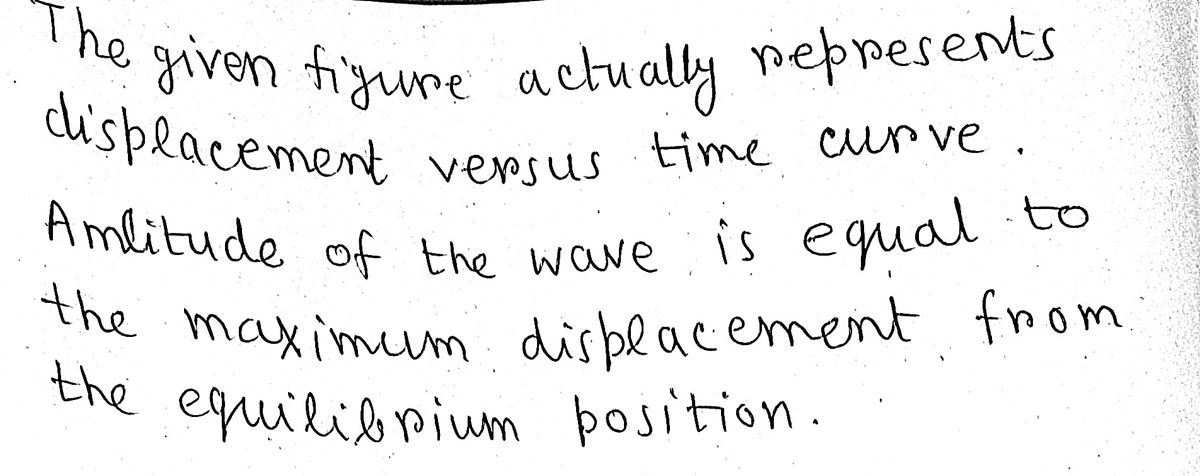 The given figure actually represents
displacement versus time curve.
Amlitude of the wave is equal to
the maximum displacement from
the equilibrium position.